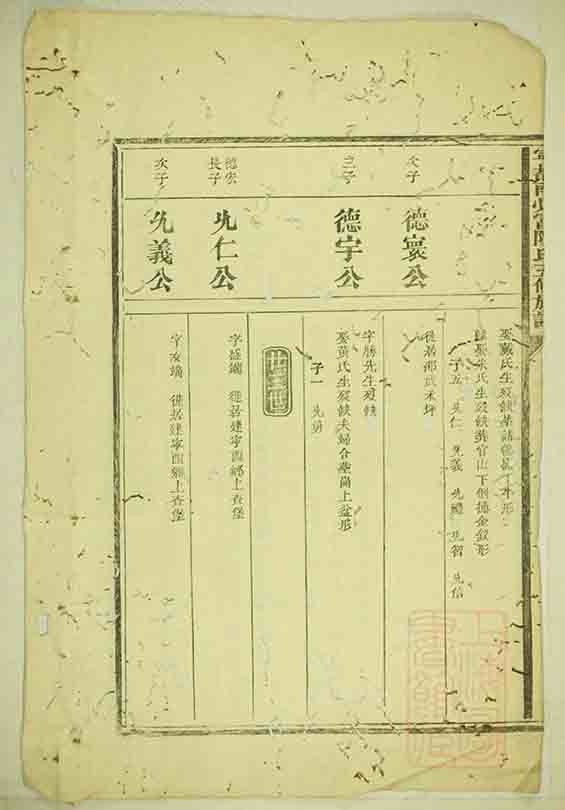 娶戴氏生歿缺葬
繼娶朱氏生歿缺葬官山下倒插金釵形
子五 先仁 先義 先禮 先智 先信
次子
德寰公
徙居邵武禾坪
三子
德宇公
字勝先生歿缺
娶黃氏生歿缺夫婦合葬崗上益形
子一 先勇
廿三世
德宏
長子
先仁公
字廷瑞 徙居建寧西鄉上查堡
次子
先義公
字 瑞 徙居建寧西鄉上查堡
上海圖
書館藏